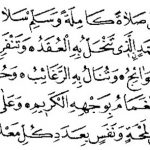 صَلَاةً كَامِلَةً وَسَلِّمْ سَلَا
الَّذِي تَنْحَلُّ بِهِ الْعُقَدُ وَتَنْفَرِ
وَائِجُ وَتُنَالُ بِهِ الرَّغَائِبُ وَحُ
غَمَامُ بِوَجْهِهِ الْكَرِيمِ وَعَلَى
لَمْحَةٍ وَنَفَسٍ بِعَدَدِ كُلِّ مَعْلُ